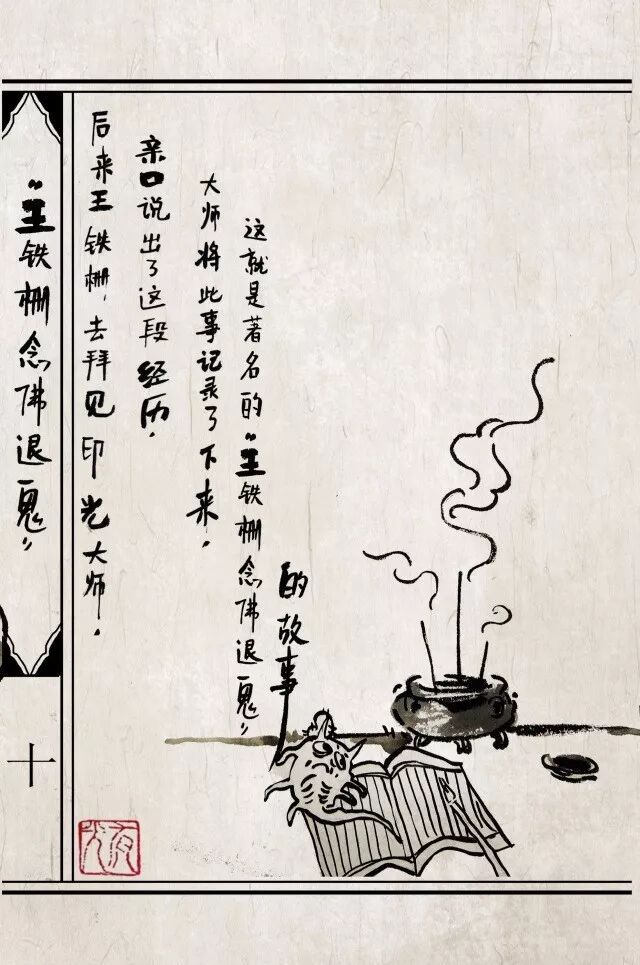 “王铁栅念佛退鬼”
十
后来王铁栅,去拜见印光大师.
亲口说出了这段经历.
大师将此事记录了下来.
这就是著名的“王铁栅念佛退鬼”
的故事